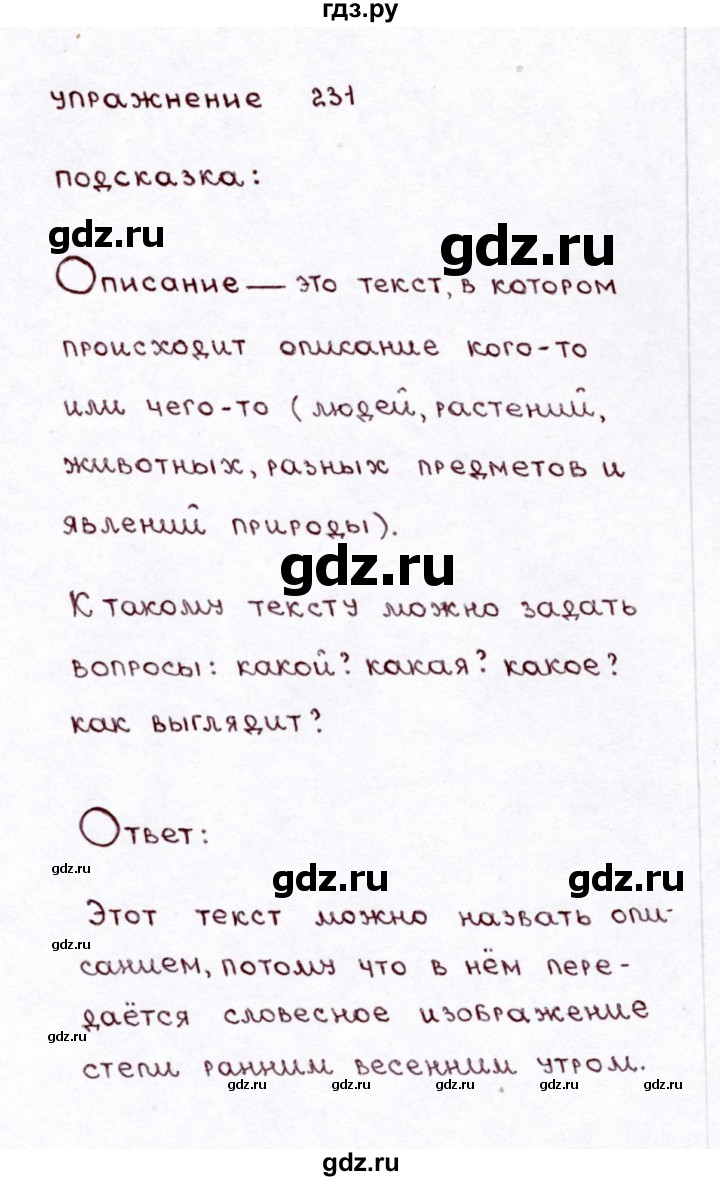 гдз.ру
упражнение 231
подсказка:
gdz.ru gdz.ru
Описание — это текст, в котором
происходит описание кого-то
или чего-то (людей, растений,
животных, разных предметов и
явлений природы).
gdz.ru
К такому тексту можно задать
вопросы: какой? какая? какое?
как выглядит?
Ответ:
gdz.ru gdz.ru gdz.ru
Этот текст можно назвать опи-
gdz.ru
санием, потому что в нём пере-
даётся словесное изображение
gdz.ru
степи ранним весенним утром.
gdz.ru gdz.ru gdz.ru gdz.ru gdz.ru
gdz.ru